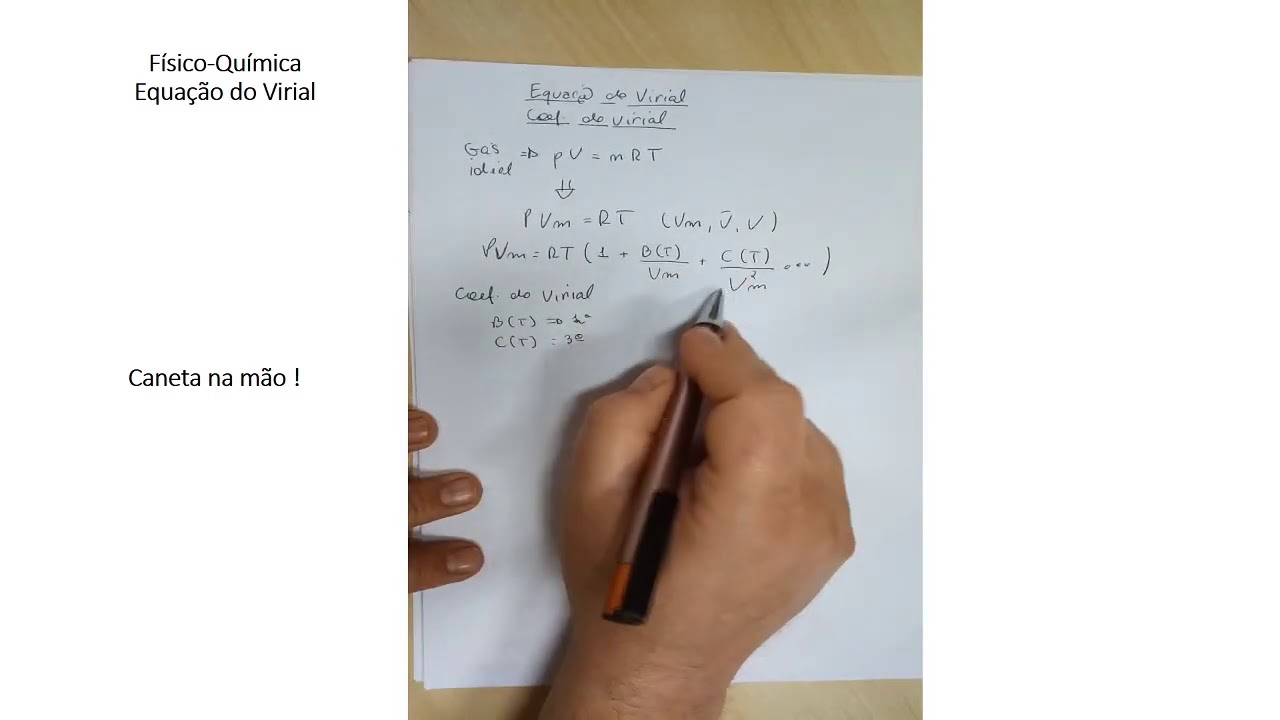 Físico-Química
Equação do Virial
Caneta na mão !
Equação do Virial
Coef. do virial
Gás
idial ⇒ pV = nRT
⇓
PVm = RT (Vm, V̄, V)
PVm = RT (1 + B(T)/Vm + C(T)/V²m ...)
Coef. do Virial
B(T) ⇒
C(T) = 3º